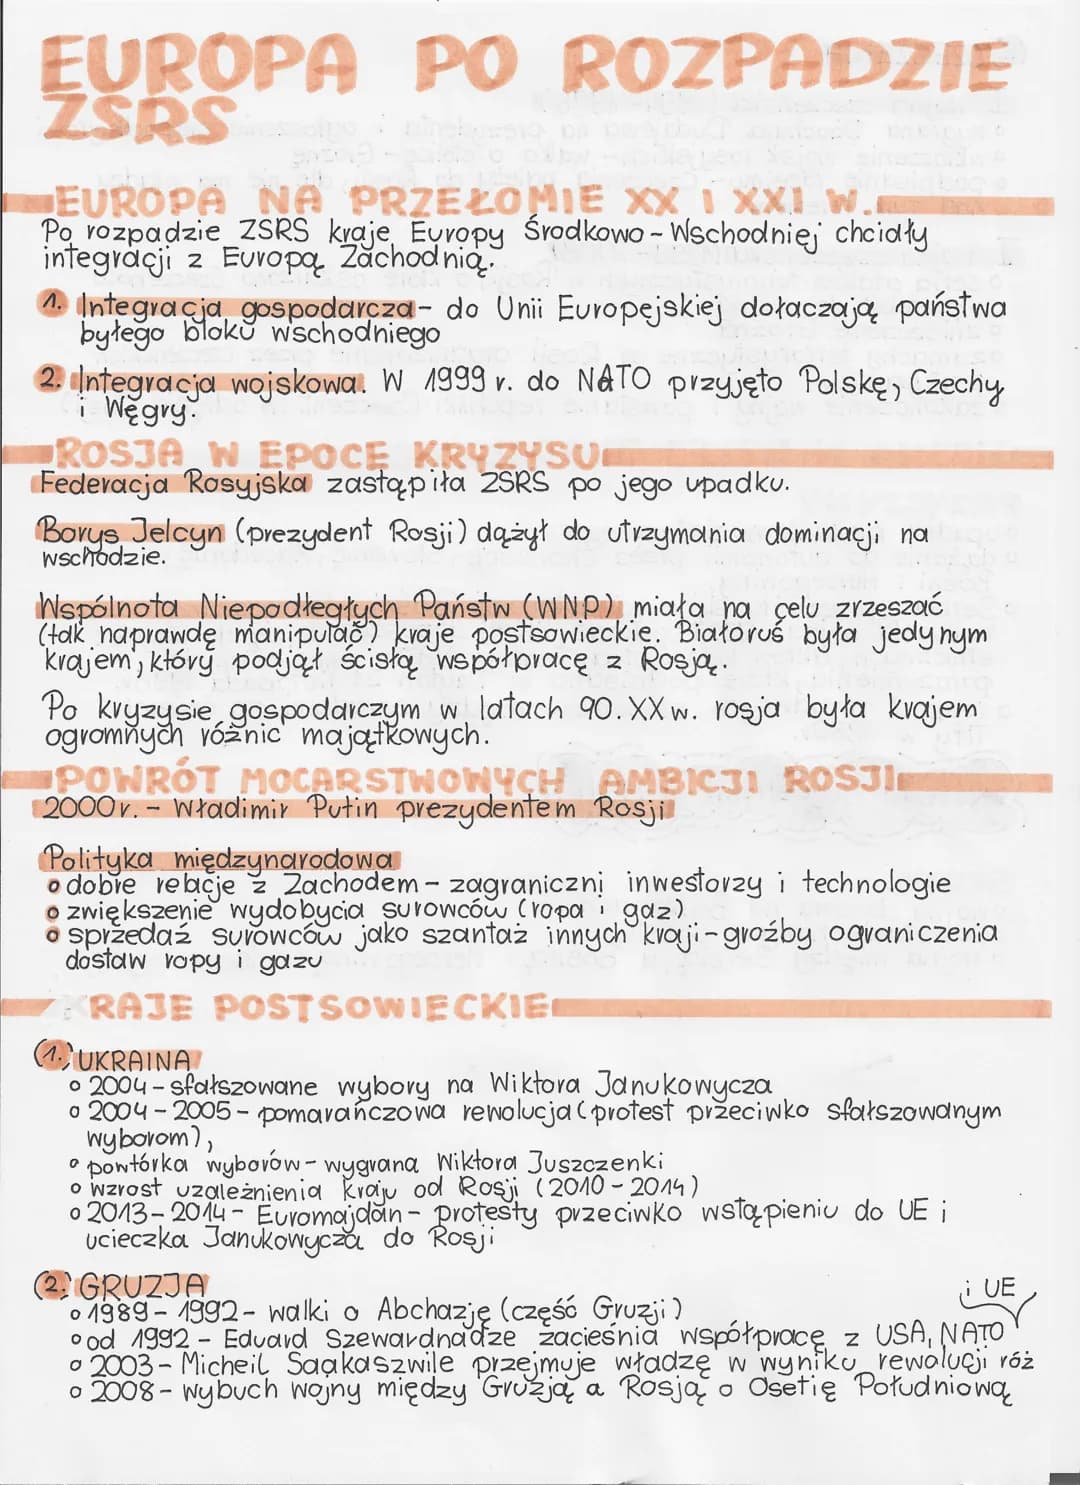 EUROPA PO ROZPADZIE
ZSRS
EUROPA NA PRZEŁOMIE XX I XXI W.
Po rozpadzie ZSRS kraje Europy Środkowo-Wschodniej chciały
integracji z Europą Zachodnią.
1. Integracja gospodarcza - do Unii Europejskiej dołaczają państwa
byłego bloku wschodniego
2. Integracja wojskowa. W 1999 r. do NATO przyjęto Polskę, Czechy
i Węgry.
ROSJA W EPOCE KRYZYSU
Federacja Rosyjska zastąpiła ZSRS po jego upadku.
Borys Jelcyn (prezydent Rosji) dążył do utrzymania dominacji na
wschodzie.
Wspólnota Niepodległych Państw (WNP) miała na celu zrzeszać
(tak naprawdę manipulać) kraje postsowieckie. Białoruś była jedynym
krajem, który podjął ścisłą współpracę z Rosją.
Po kryzysie gospodarczym w latach 90. XX w. rosja była krajem
ogromnych różnic majątkowych.
POWRÓT MOCARSTWOWYCH AMBICJI ROSJI
2000 r. - Władimir Putin prezydentem Rosji
Polityka międzynarodowa
o dobre relacje z Zachodem - zagraniczni inwestorzy i technologie
o zwiększenie wydobycia surowców (ropa i gaz)
o sprzedaż surowców jako szantaż innych kraji - groźby ograniczenia
dostaw ropy i gazu
KRAJE POSTSOWIECKIE
1. UKRAINA
o 2004 - sfałszowane wybory na Wiktora Janukowycza
o 2004 - 2005 - pomarańczowa rewolucja (protest przeciwko sfałszowanym
wyborom),
o powtórka wyborów - wygrana Wiktora Juszczenki
o wzrost uzależnienia kraju od Rosji (2010 - 2014)
o 2013 - 2014 - Euromajdan - protesty przeciwko wstąpieniu do UE i
ucieczka Janukowycza do Rosji
2. GRUZJA
o 1989 - 1992 - walki o Abchazję (część Gruzji)
i UE
o od 1992 - Eduard Szewardnadze zacieśnia współpracę z USA, NATO
o 2003 - Micheil Saakaszwile przejmuje władzę w wyniku rewolucji róż
o 2008 - wybuch wojny między Gruzją a Rosją o Osetię Południową